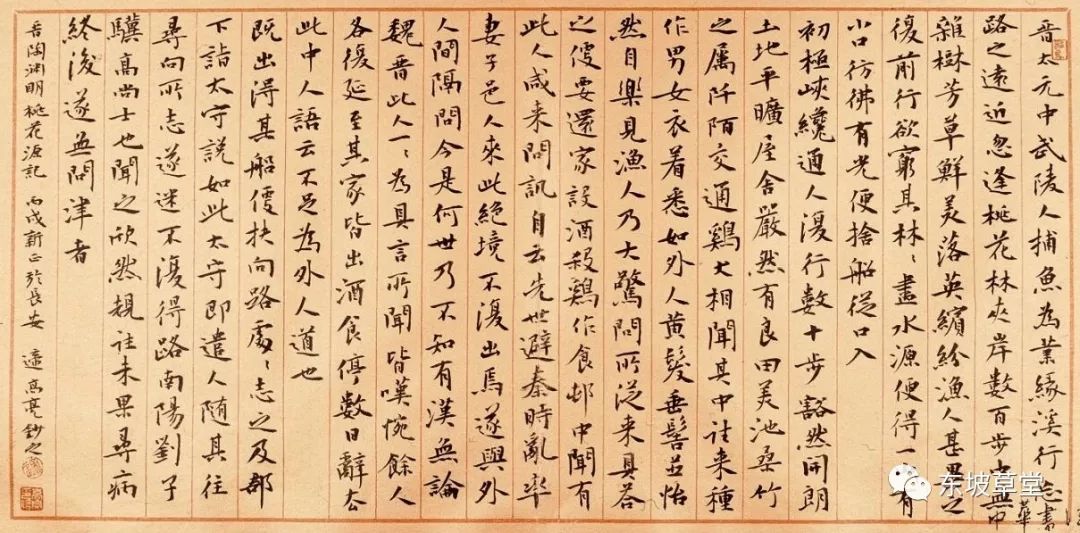 晋太元中武陵人捕魚為業緣溪行忘
路之遠近忽逢桃花林夾岸數百步中無
雜樹芳草鮮美落英繽紛漁人甚異之
復前行欲窮其林〻盡水源便得一有
小口彷彿有光便捨船從口入
初極峽纔通人復行數十步豁然開朗
土地平曠屋舍嚴然有良田美池桑竹
之属阡陌交通鷄犬相聞其中往来種
作男女衣着悉如外人黄髮垂髫並怡
然自樂見漁人乃大驚問所從来具荅
之便要還家設酒殺鷄作食邨中聞有
此人咸来問訊自云先世避秦時亂率
妻子邑人來此絶境不復出焉遂與外
人間隔問今是何世乃不知有漢無論
魏晋此人一〻為具言所聞皆嘆惋餘人
各復延至其家皆出酒食停數日辭去
此中人語云不足為外人道也
既出得其船便扶向路處〻志之及郡
下詣太守説如此太守即遣人随其往
尋向所志遂迷不復得路南陽劉子
驥高尚士也聞之欣然親往未果尋病
終後遂無問津者
晋陶淵明桃花源記 丙戌新正於長安 高亮鈔之
东坡草堂
中華書